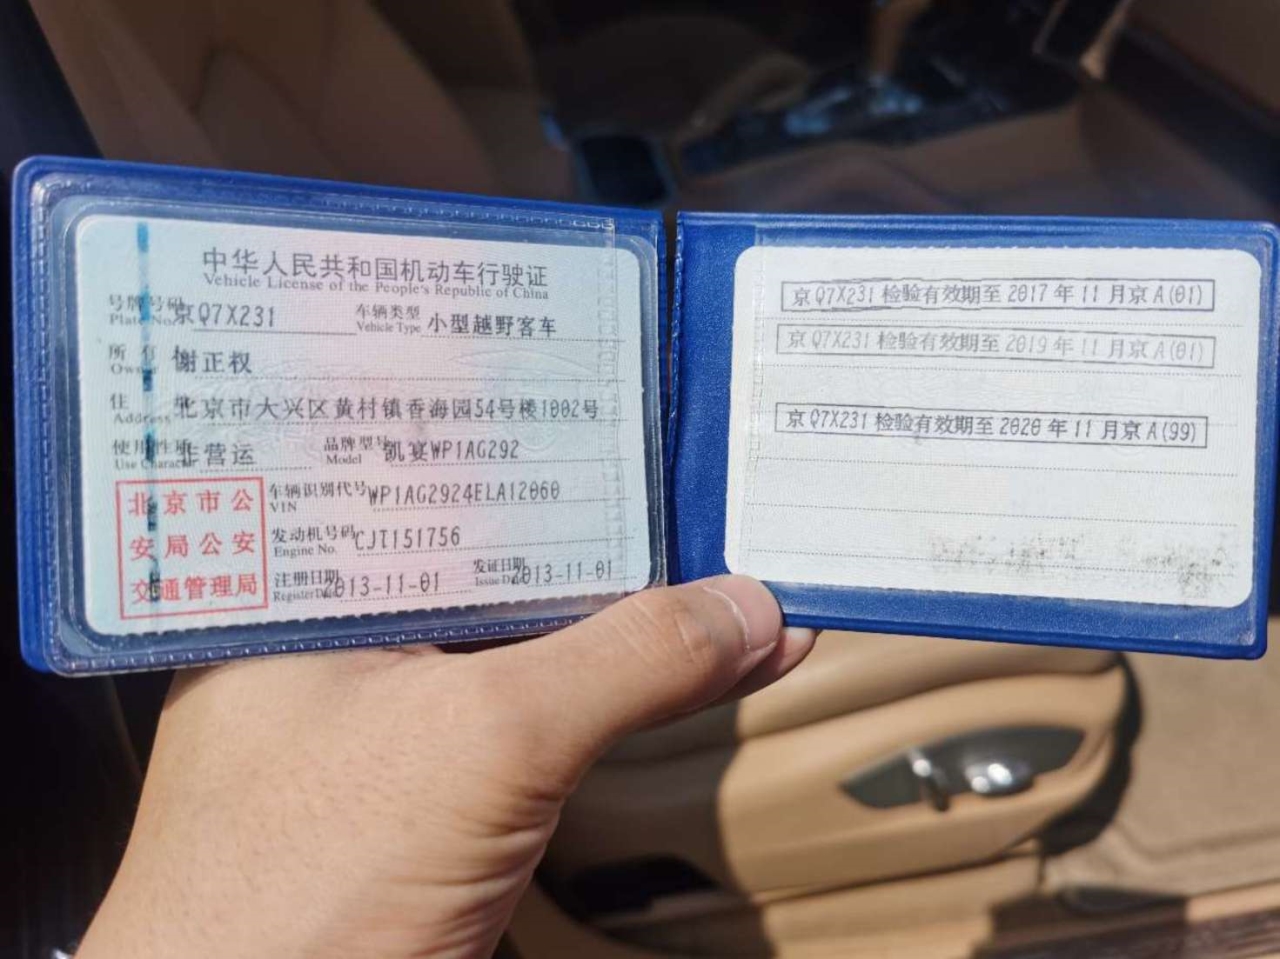 中华人民共和国机动车行驶证
Vehicle License of the People's Republic of China
号牌号码 京Q7X231 车辆类型 小型越野客车
Plate No. Vehicle Type
所有人 谢正权
Owner
住 北京市大兴区黄村镇香海园54号楼1002号
Address
使用性质 非营运 品牌型号 凯宴WP1AG292
Use Character Model
车辆识别代号 WP1AG2924ELA12060
VIN
发动机号码 CJT151756
Engine No.
注册日期 2013-11-01 发证日期 2013-11-01
Register Date Issue Date
北京市公
安局公安
交通管理局
京Q7X231 检验有效期至2017年11月京A(01)
京Q7X231 检验有效期至2019年11月京A(01)
京Q7X231 检验有效期至2020年11月京A(99)